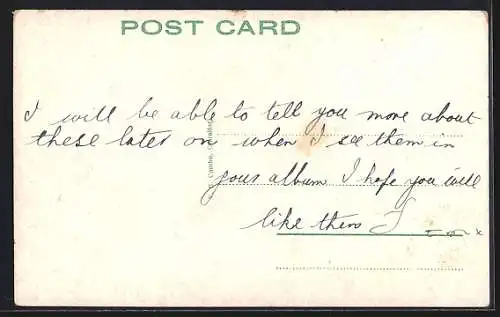 POST CARD
I will be able to tell you more about
these later on when I see them in
your album I hope you will
like them